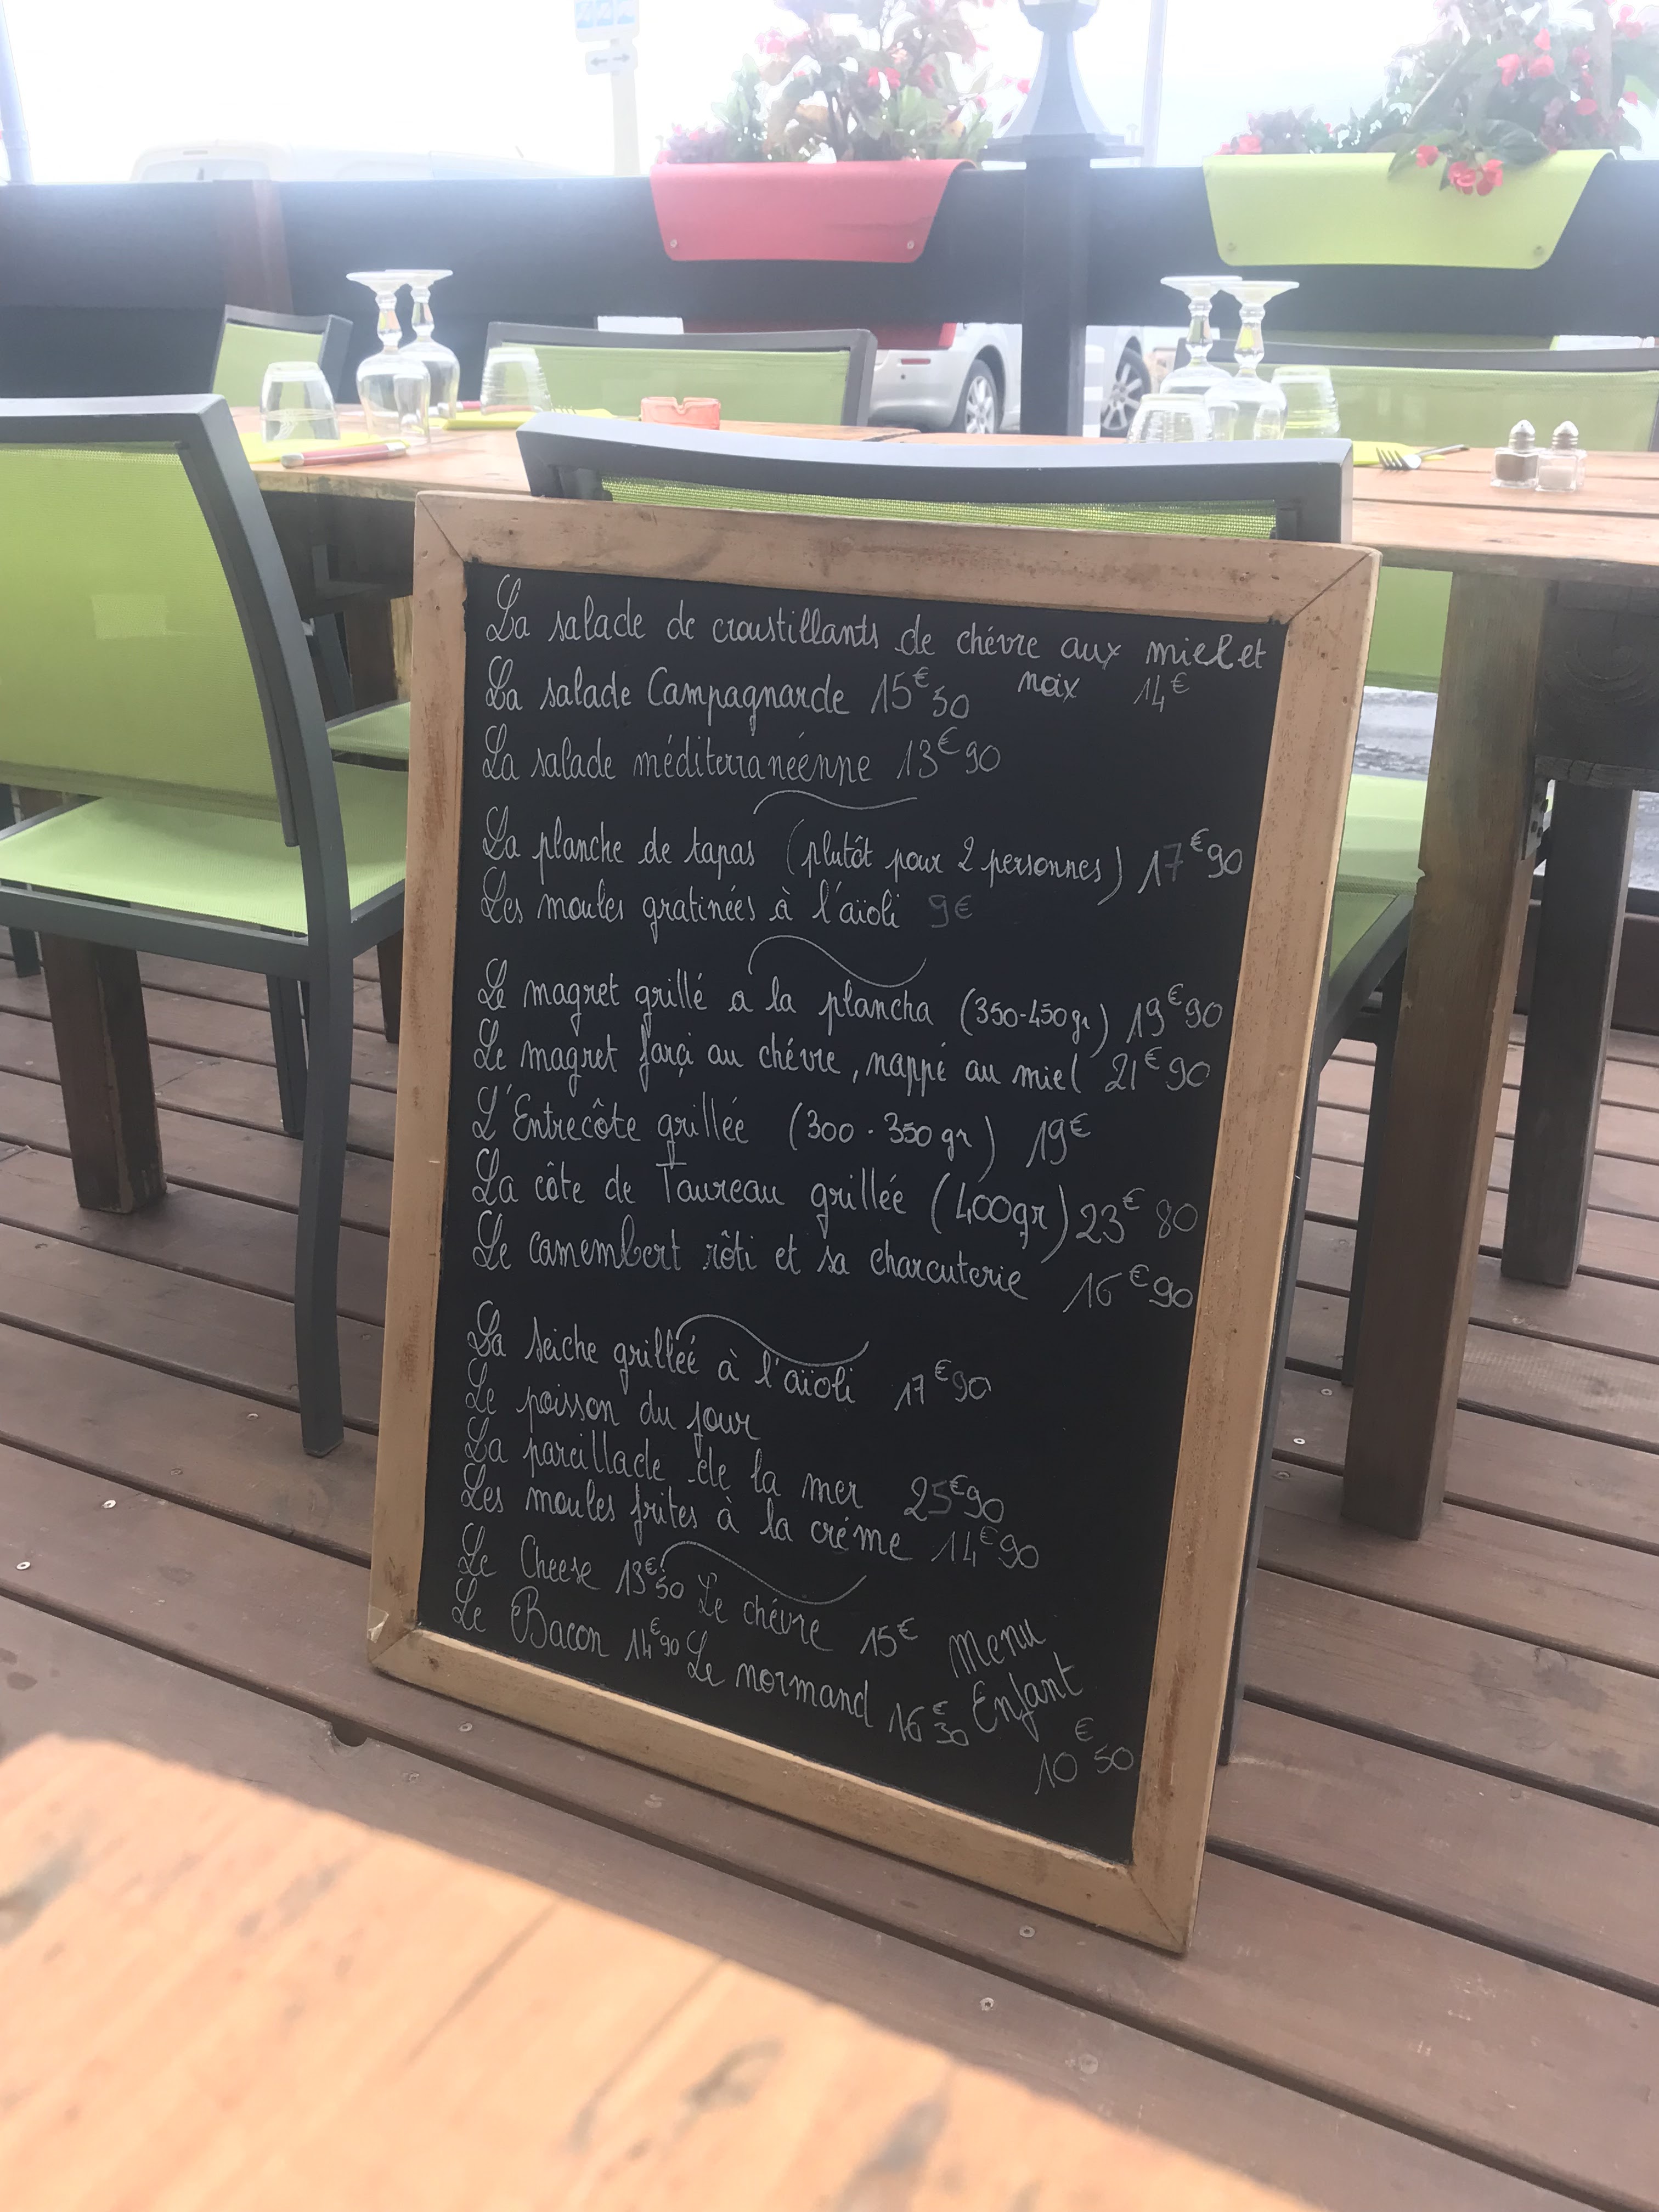 La salade de croustillants de chévre aux miel et
noix 14€
La salade Campagnarde 15€50
La salade méditerranéenne 13€90
La planche de tapas (plutôt pour 2 personnes) 17€90
Les moules gratinées à l'aïoli 9€
Le magret grillé a la plancha (350-450gr) 19€90
Le magret farçi au chévre, nappé au miel 21€90
L'Entrecôte grillée (300-350gr) 19€
La côte de Taureau grillée (400gr) 23€80
Le camembert rôti et sa charcuterie 16€90
La seiche grilleé à l'aïoli 17€90
Le poisson du jour
La parcillade de la mer 25€90
Les moules frites à la créme 14€90
Le Cheese 13€50 Le chévre 15€
Le Bacon 14€90 Le normand 16€30
Menu
Enfant
10€50